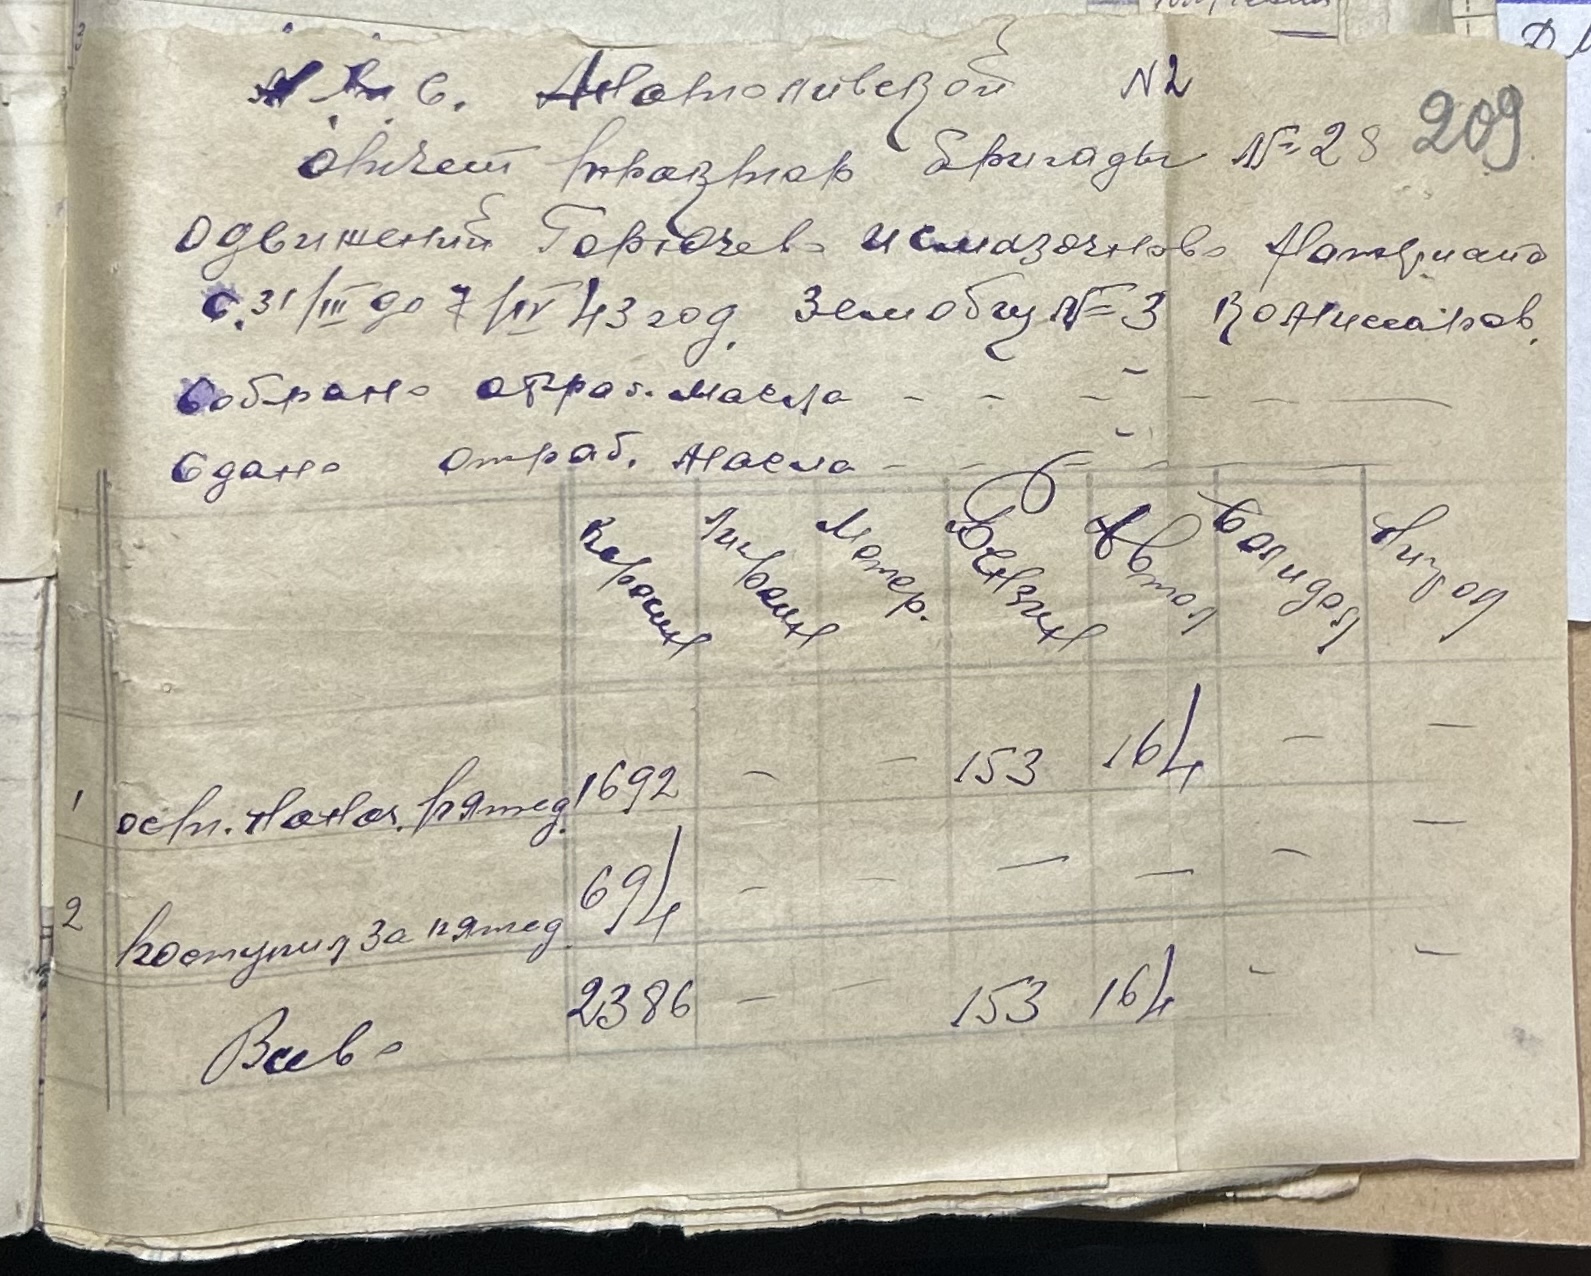 М.Т.С. Анатолиевской N2
209
Отчет трактор бригады №28
о движений Горючево и смазочново Материала
с 31/III до 7/IV 43 год. Землобщ №3 Комиссаров.
Собрано отраб. масла - - - - -
Сдано отраб. масла - - - -
Керосин Лигроин Мотор. Бензин Автол Солидол Нигрол
1 ост. на нач. пятед. 1692 - - 153 164 - -
2 поступил за пятед 694 - - - - - -
Всево 2386 - - 153 164 - -